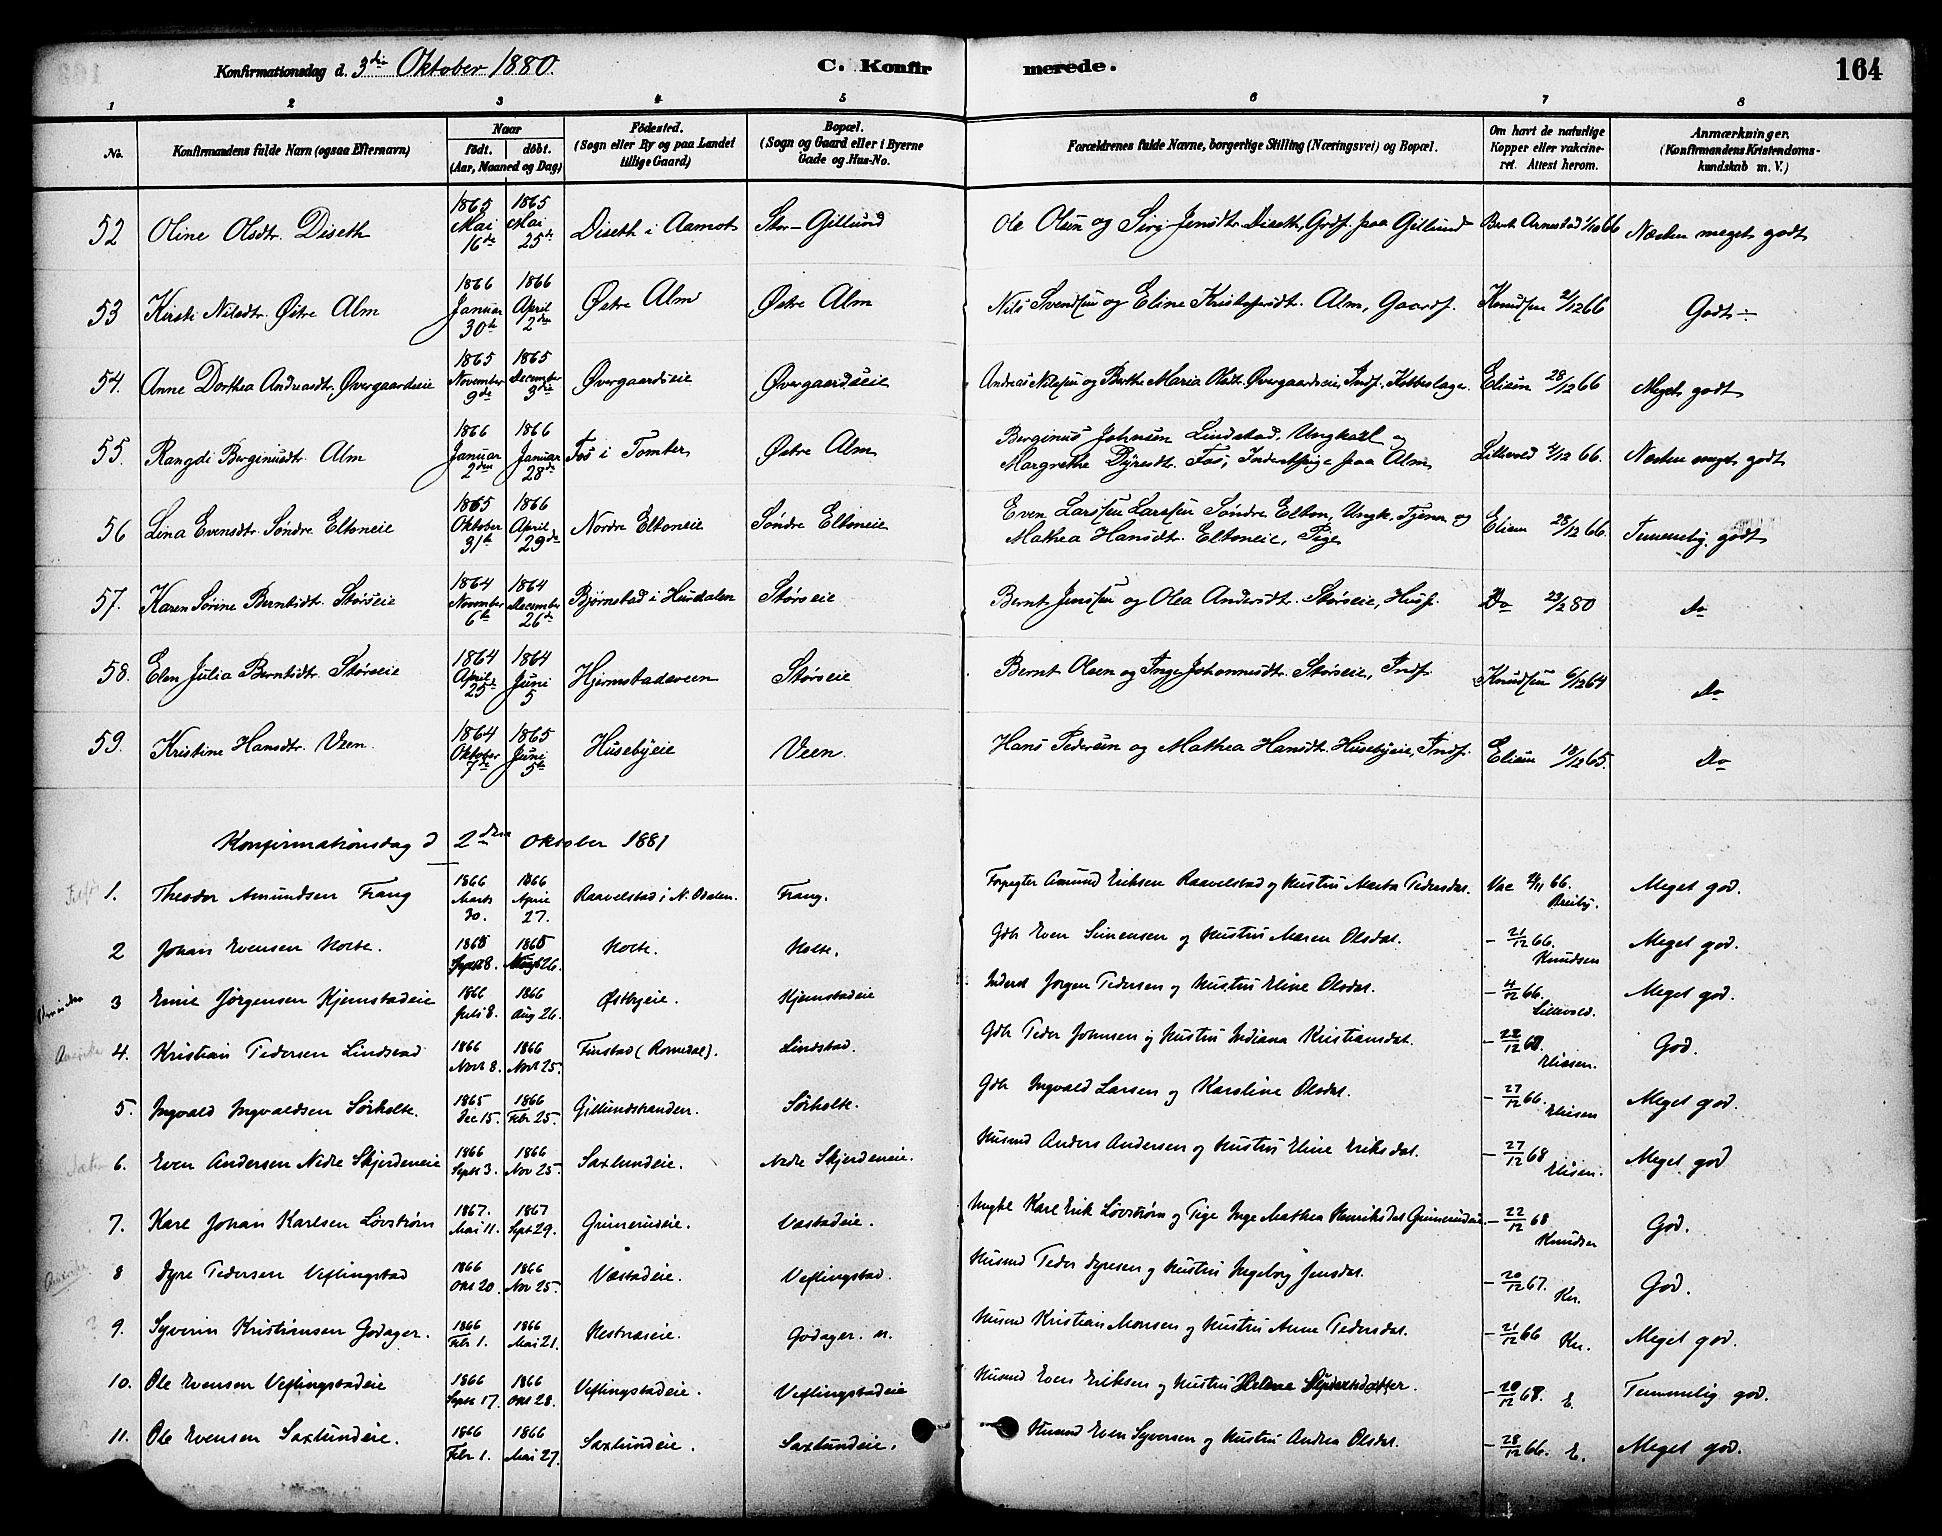 Konfirmationsdag d. 3die Oktober 1880. C. Konfirmerede. 164
1 2 3 4 5 6 7 8
No. Konfirmandens fulde Navn (ogsaa Efternavn) Naar født. døbt. (Aar, Maaned og Dag) Födested. (Sogn eller By og paa Landet tillige Gaard) Bopæl. (Sogn og Gaard eller i Byerne Gade og Hus-No. Forældrenes fulde Navne, borgerlige Stilling (Næringsvei) og Bopæl. Om havt de naturlige Kopper eller vakcineret. Attest herom. Anmærkninger. (Konfirmandens Kristendomskundskab m. V.)
52 Oline Olsdtr. Diseth 1865 Mai 16de 1865 Mai 25de Diseth i Aamot Stor-Gillund Ole Olsen og Siri Jensdtr. Diseth, Grdf. paa Gillund Bent Arnestad 1/10 66 Næsten meget godt
53 Kirsti Nilsdtr. Østre Alm 1866 Januar 30te 1866 April 2den Østre Alm Østre Alm Nils Svendsen og Eline Kristofersdt. Alm, Gaardf. Knudsen 2/12 66 Godt
54. Anne Dorthea Andreasdtr. Øvergaardseie 1865 November 9de 1865 December 3die Øvergaardseie Øvergaardseie Andreas Nilssen og Berthe Maria Olsdt. Øvergaardseie, Indf. Kobberslager Eliesen 28/12 66 Meget godt
55. Rangdi Berginusdt. Alm 1866 Januar 2den 1866 Januar 28de Fos i Tomter Østre Alm Berginus Johnsen Lindstad, Ungkarl og Margrethe Dyresdt. Fos, Inderstpige paa Alm Lillevold 4/12 66. Næsten meget godt
56 Lina Evensdtr. Søndre Eltoneie 1865 Oktober 31te 1866 April 29de Nordre Eltoneie Søndre Eltoneie Even Larssen Larssen Søndre Elton, Ungk. Tjener og Mathea Hansdt. Eltoneie, Pige Eliesen 28/12 66. Temmelig godt
57. Karen Sørine Berntsdt. Størseie 1864 November 6te 1864 December 26de Bjørnstad i Hurdalen Størseie Bernt Jenssen og Olea Andersdt. Størseie, Husf. Do 23/2 80 Do
58. Elen Julia Berntsdt. Størseie 1864 April 25de 1864 Juni 5 Hjermstadsveen Størseie Bernt Olsen og Inge Johannesdt. Størseie, Indf. Knudsen 6/12 64 Do
59. Kristine Hansdtr. Veen. 1864 Oktober 7de 1865 Juni 5te Husebyeie Veen. Hans Pedersen og Mathea Hansdt. Husebyeie, Indf. Eliesen 18/12 65. Do
Konfirmationsdag d 2den Oktober 1881
1. Theodor Amundsen Frang 1866 Marts 30. 1866 April 27. Raavelstad i N. Odalen. Frang. Forpagter Amund Eriksen Raavelstad og Hustru Marta Pedersdat. Vac 21/11 66. Breiby. Meget god.
2 Johan Evensen Holte. 1865 Sept 28. 1865 26. Holte. Holte. Gdb Even Simensen og Hustru Maren Olsdat. - 21/12 66. Knudsen Meget god.
3 Emil Jørgensen Hjemstadeie 1866 Juli 8. 1866 Aug 26. Østbyeie. Hjemstadeie Inderst Jørgen Pedersen og Hustru Eline Olsdat. - 4/12 66. Lillevold. Meget god.
Amerika 4. Kristian Pedersen Lindstad 1866 Novr 8. 1866 Novr 25. Finstad (Romedal). Lindstad. Gdb Peder Johnsen og Hustru Indiana Kristiansdat. - 22/12 68. Eliesen. God.
5. Ingvald Ingvaldsen Sørholte. 1865 Dec 15. 1866 Febr 25. Gillundstranden. Sørholte. Gdb Ingvald Larsen og Karoline Olsdat. - 27/12 66. Eliesen Meget god.
6. Even Andersen Nedre Skjerdeneie 1866 Sept 3. 1866 Nov 25. Saxlundeie. Nedre Skjerdeneie. Husmd Anders Andersen og Hustru Eline Eriksdat. - 27/12 68 Eliesen. Meget god
7. Karl Johan Karlsen Løvstrøm 1867. Mai 11. 1867 Sept 29. Grimerudeie. Væstadeie. Ungkl Karl Erik Løvstrøm og Pige Inge Mathea Henriksdat Grimerudeie - 22/12 68 Knudsen God.
Amerika 8 Dyre Pedersen Veflingstad 1866 Okt 20. 1866 Nov 25. Væstadeie. Veflingstad. Husmd Peder Dyresen og Hustru Ingeborg Jensdat. - 20/12 67. Kn. God.
? 9. Syverin Kristiansen Godager. 1866 Febr 1. 1866 Mai 21. Hestnæseie. Godager. n. Husmd Kristian Monsen og Hustru Anne Pedersdat. - 21/12 66 Kn. Meget god.
10. Ole Evensen Veflingstadeie 1866 Sept 17. 1866 Okt 28. Veflingstadeie. Veflingstadeie Husmd Even Eriksen og Hustru Helene - 20/12 68. E. Temmelig god.
11. Ole Evensen Saxlundeie. 1866 Febr 1. 1866 Mai 27. Saxlundeie. Saxlundeie. Husmd Even Syversen og Hustru Andrea Olsdat. - 28/12 66. E. Meget god.